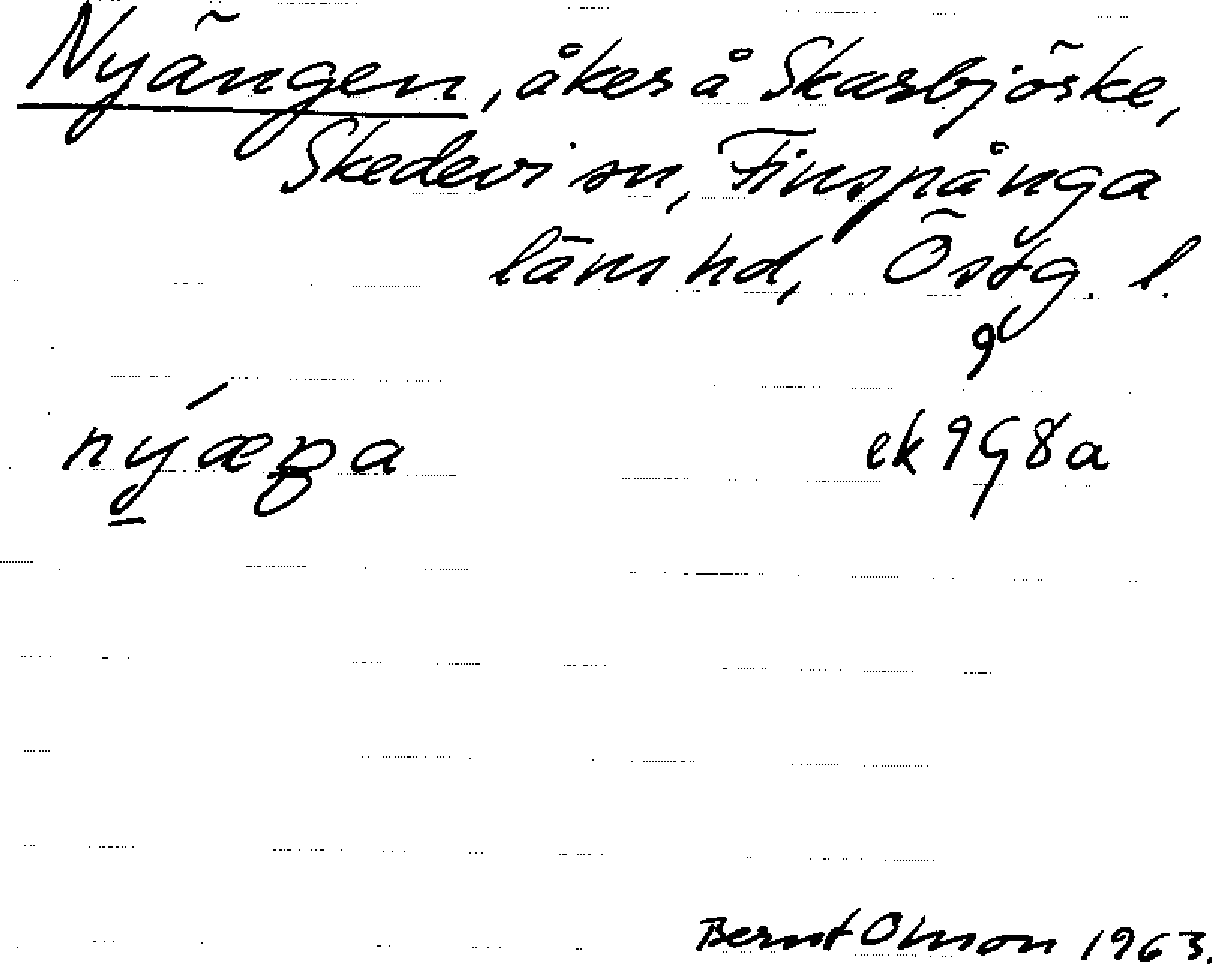 Nyängen, åker å Skarbjörke,
Skedevi sn, Finspånga
läns hd, Östg. l.
ek 9G8a
Bernt Olsson 1963.